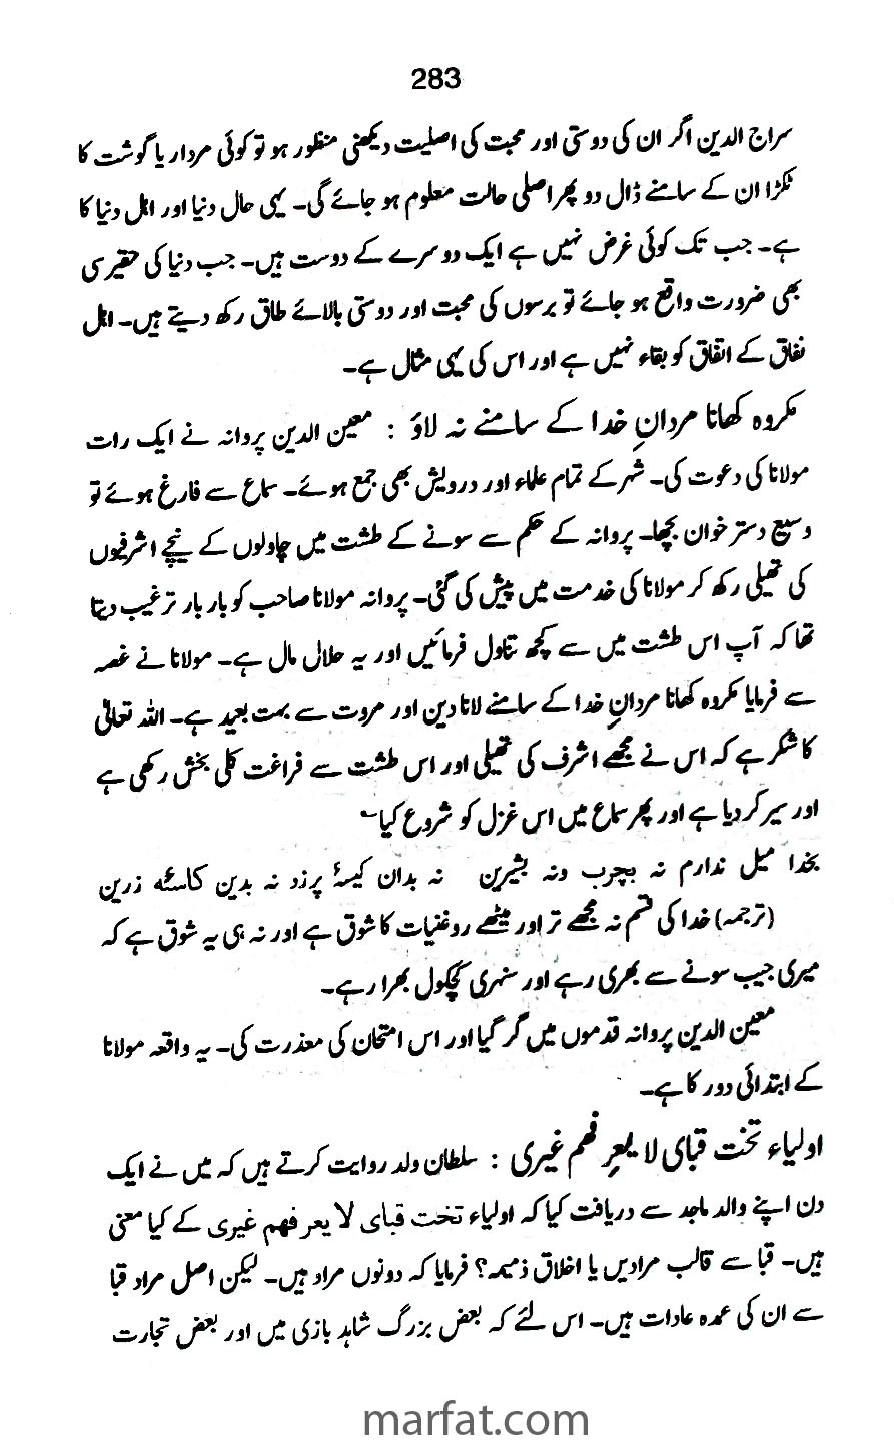 283
سراج الدین اگر ان کی دوستی اور محبت کی اصلیت دیکھنی منظور ہو تو کوئی مردار یا گوشت کا
ٹکڑا ان کے سامنے ڈال دو پھر اصلی حالت معلوم ہو جائے گی۔ یہی حال دنیا اور اہل دنیا کا
ہے۔ جب تک کوئی غرض نہیں ہے ایک دوسرے کے دوست ہیں۔ جب دنیا کی حقیر سی
بھی ضرورت واقع ہو جائے تو برسوں کی محبت اور دوستی بالائے طاق رکھ دیتے ہیں۔ اہل
نفاق کے اتفاق کو بقاء نہیں ہے اور اس کی یہی مثال ہے۔
مکروہ کھانا مردانِ خدا کے سامنے نہ لاؤ : معین الدین پروانہ نے ایک رات
مولانا کی دعوت کی۔ شہر کے تمام علماء اور درویش بھی جمع ہوئے۔ سماع سے فارغ ہوئے تو
وسیع دستر خوان بچھا۔ پروانہ کے حکم سے سونے کے طشت میں چاولوں کے نیچے اشرفیوں
کی تھیلی رکھ کر مولانا کی خدمت میں پیش کی گئی۔ پروانہ مولانا صاحب کو بار بار ترغیب دیتا
تھا کہ آپ اس طشت میں سے کچھ تناول فرمائیں اور یہ حلال مال ہے۔ مولانا نے غصہ
سے فرمایا مکروہ کھانا مردانِ خدا کے سامنے لانا دین اور مروت سے بہت بعید ہے۔ اللہ تعالیٰ
کا شکر ہے کہ اس نے مجھے اشرف کی تھیلی اور اس طشت سے فراغت کلی بخش رکھی ہے
اور سیر کر دیا ہے اور پھر سماع میں اس غزل کو شروع کیا۔
بخدا میل ندارم نہ بچرب ونہ بشیرین نہ بدان کیسۂ پرزد نہ بدین کاسئہ زرین
(ترجمہ) خدا کی قسم نہ مجھے تر اور میٹھے روغنیات کا شوق ہے اور نہ ہی یہ شوق ہے کہ
میری جیب سونے سے بھری رہے اور سنہری کچکول بھرا رہے۔
معین الدین پروانہ قدموں میں گر گیا اور اس امتحان کی معذرت کی۔ یہ واقعہ مولانا
کے ابتدائی دور کا ہے۔
اولیاء تحت قبای لا یعرِ فھم غیری : سلطان ولد روایت کرتے ہیں کہ میں نے ایک
دن اپنے والد ماجد سے دریافت کیا کہ اولیاء تحت قبای لا یعر فھم غیری کے کیا معنی
ہیں۔ قبا سے قالب مراد ہیں یا اخلاق ذمیمہ؟ فرمایا کہ دونوں مراد ہیں۔ لیکن اصل مراد قبا
سے ان کی عمدہ عادات ہیں۔ اس لئے کہ بعض بزرگ شاہد بازی میں اور بعض تجارت
marfat.com